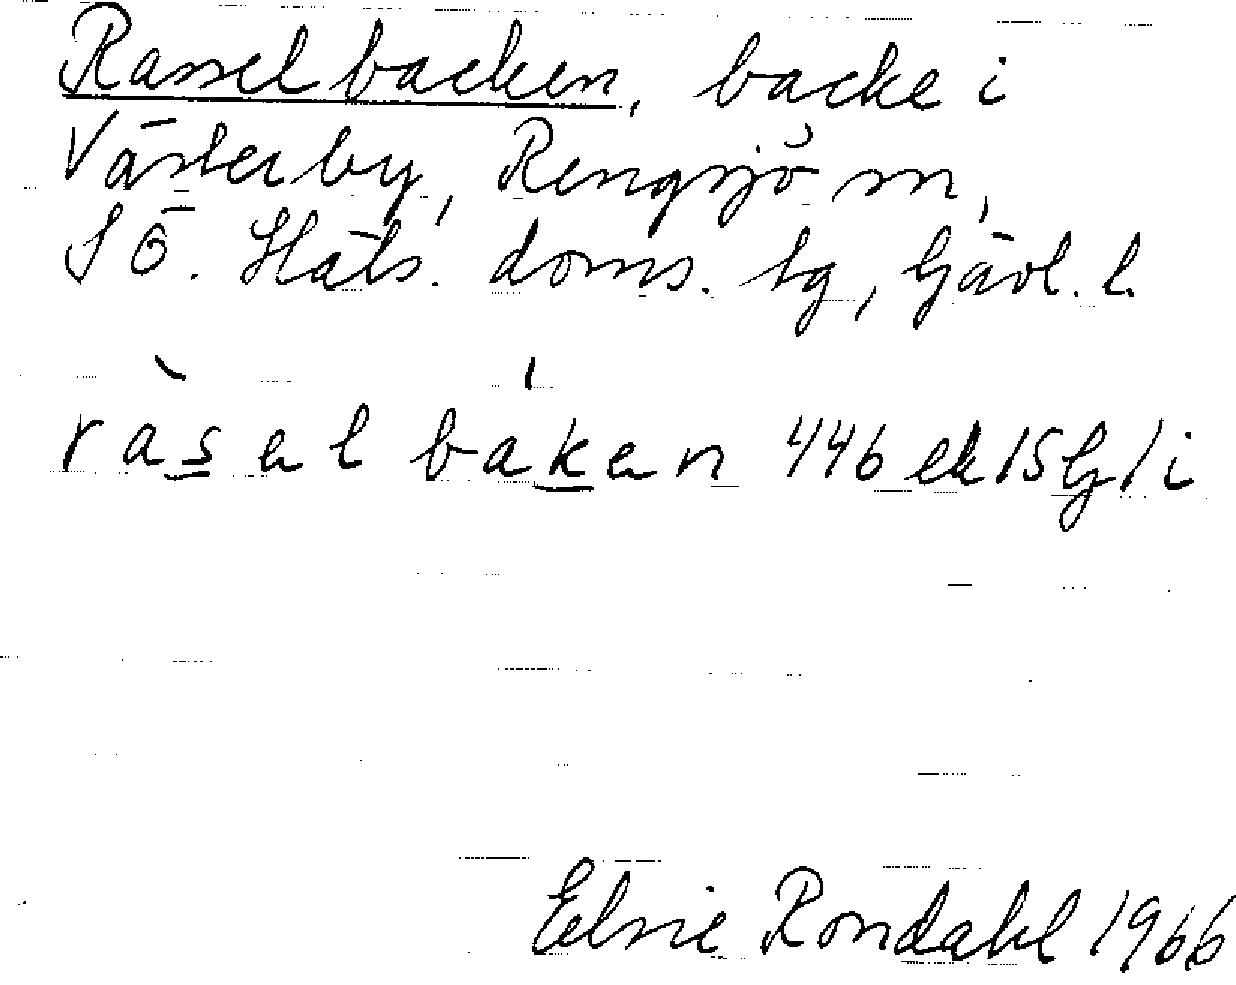 Rasselbacken, backe i
Västerby, Rengsjö sn,
SÖ. Häls. doms. tg, Gävl. l.
ràsel báken 446 ek 15 G / i
Elsie Rondahl 1966